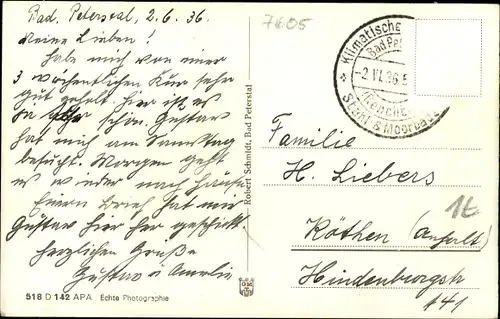 Bad. Peterstal, 2.6.36.
Meine Lieben!
Habe mich von einer
3 wöchentlichen Kur sehr
gut geholt hier ist es
ja sehr schön. Gustav
hat mich am Samstag
besucht. Morgen geht
es wieder nach Hause
Euern Brief hat mir
Gustav hier her geschickt.
Herzlichen Grüße
Gustav u Amelie
518 D 142 APA Echte Photographie
Robert Schmidt, Bad Peterstal
7605
Klimatische
Bad Pet
-2.VI.36.
(Renchta
Stahl & Moorba
Familie
H. Liebers
Köthen (Anhalt)
Hindenburgstr
141
1€